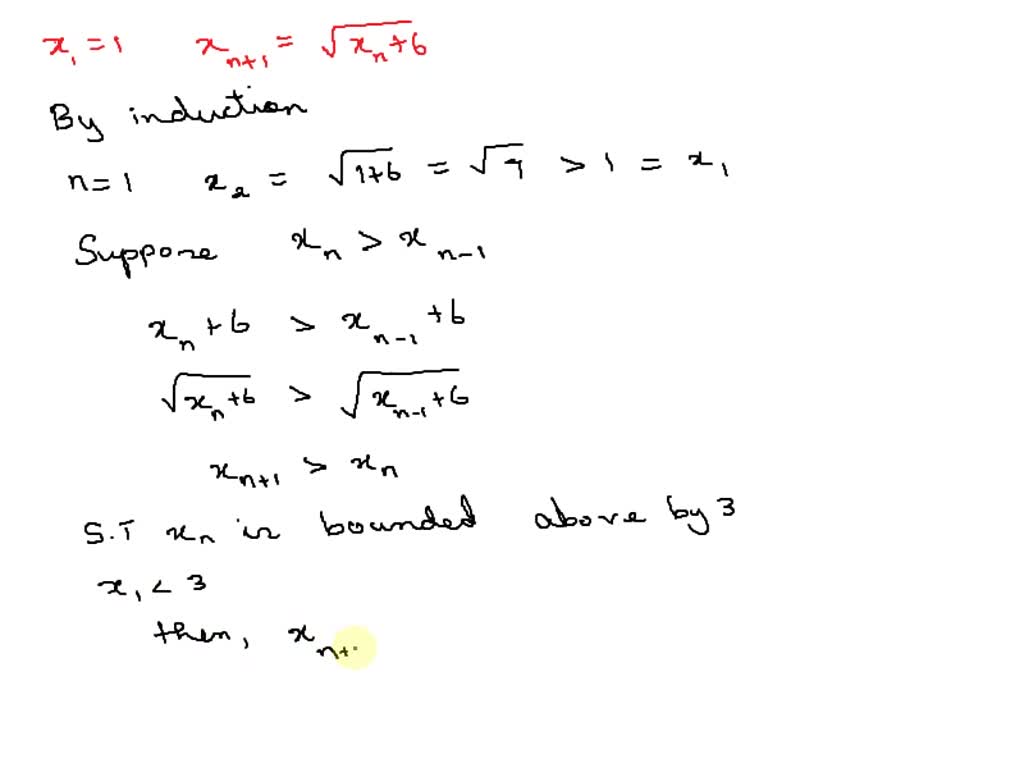 x₁ = 1 xₙ₊₁ = √(xₙ+6)
By induction
n=1 x₂ = √(1+6) = √7 > 1 = x₁
Suppose xₙ > xₙ₋₁
xₙ + 6 > xₙ₋₁ + 6
√(xₙ+6) > √(xₙ₋₁+6)
xₙ₊₁ > xₙ
S.T xₙ is bounded above by 3
x₁ < 3
then, xₙ₊